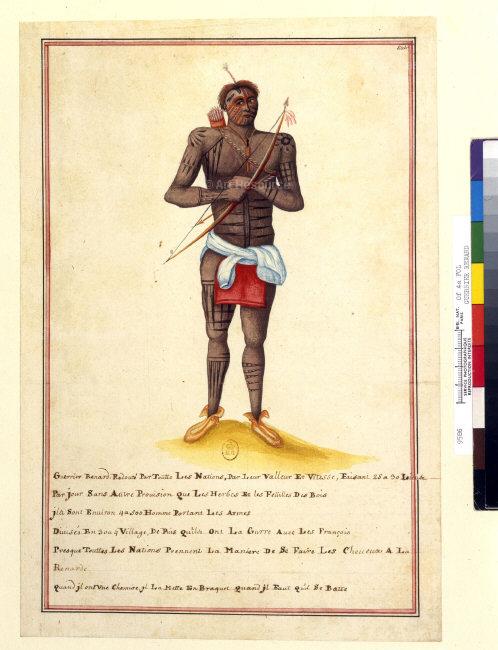 Guerrier Renard, Redouté Par Toutte Les Nations, Par Leur Valleur Et Vitesse, Faisant 25 a 30 Lieu
Par Jour Sans Autre Provision Que Les Herbes Et les Feüilles Des Bois
jls Sont Environ 4 a 500 Homme Portant Les Armes
Divisés En 3 ou 4 Village, De Puis Quils Ont La Guerre Avec Les François
Presque Touttes Les Nations Prennent La Maniere De Se Faire Les Cheveux A La
Renarde
Quand jl ont Une Chemise, jl La Mette En Braguet quand jl Se Batte
© Art Resource
9586
BIBL. NAT. PARIS
SERVICE PHOTOGRAPHIQUE
REPRODUCTION INTERDITE
Of 4a FOL
GUERRIER RENARD